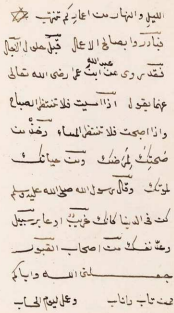 الليل والنهار من اعماركم تنتهب
فبادروا بصالح الاعمال قبل حلول الآجال
فقد روى عن عبد الله ابن عمر رضى الله تعالى
عنهما يقول اذا امسيت فلا تنتظر الصباح
واذا اصبحت فلا تنتظر المساء وخذ من
صحتك لمرضك ومن حياتك
لموتك وقال رسول الله صلى الله عليه وسلم
كن فى الدنيا كانك غريب او عابر سبيل
وعد نفسك من اصحاب القبور
جعلنى الله واياكم
ممن تاب واناب وعمل ليوم الحساب